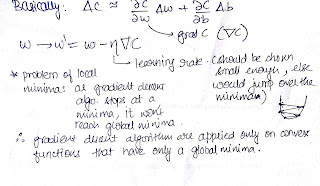 Basically: ΔC ≈ ∂C/∂w Δw + ∂C/∂b Δb
grad C (∇C)
w → w' = w - η∇C
learning rate. (should be chosen small enough, else would jump over the minima)
* problem of local
minima: as gradient descent
algo. stops at a
minima, it won't
reach global minima.
∴ gradient descent algorithm are applied only on convex
functions that have only a global minima.